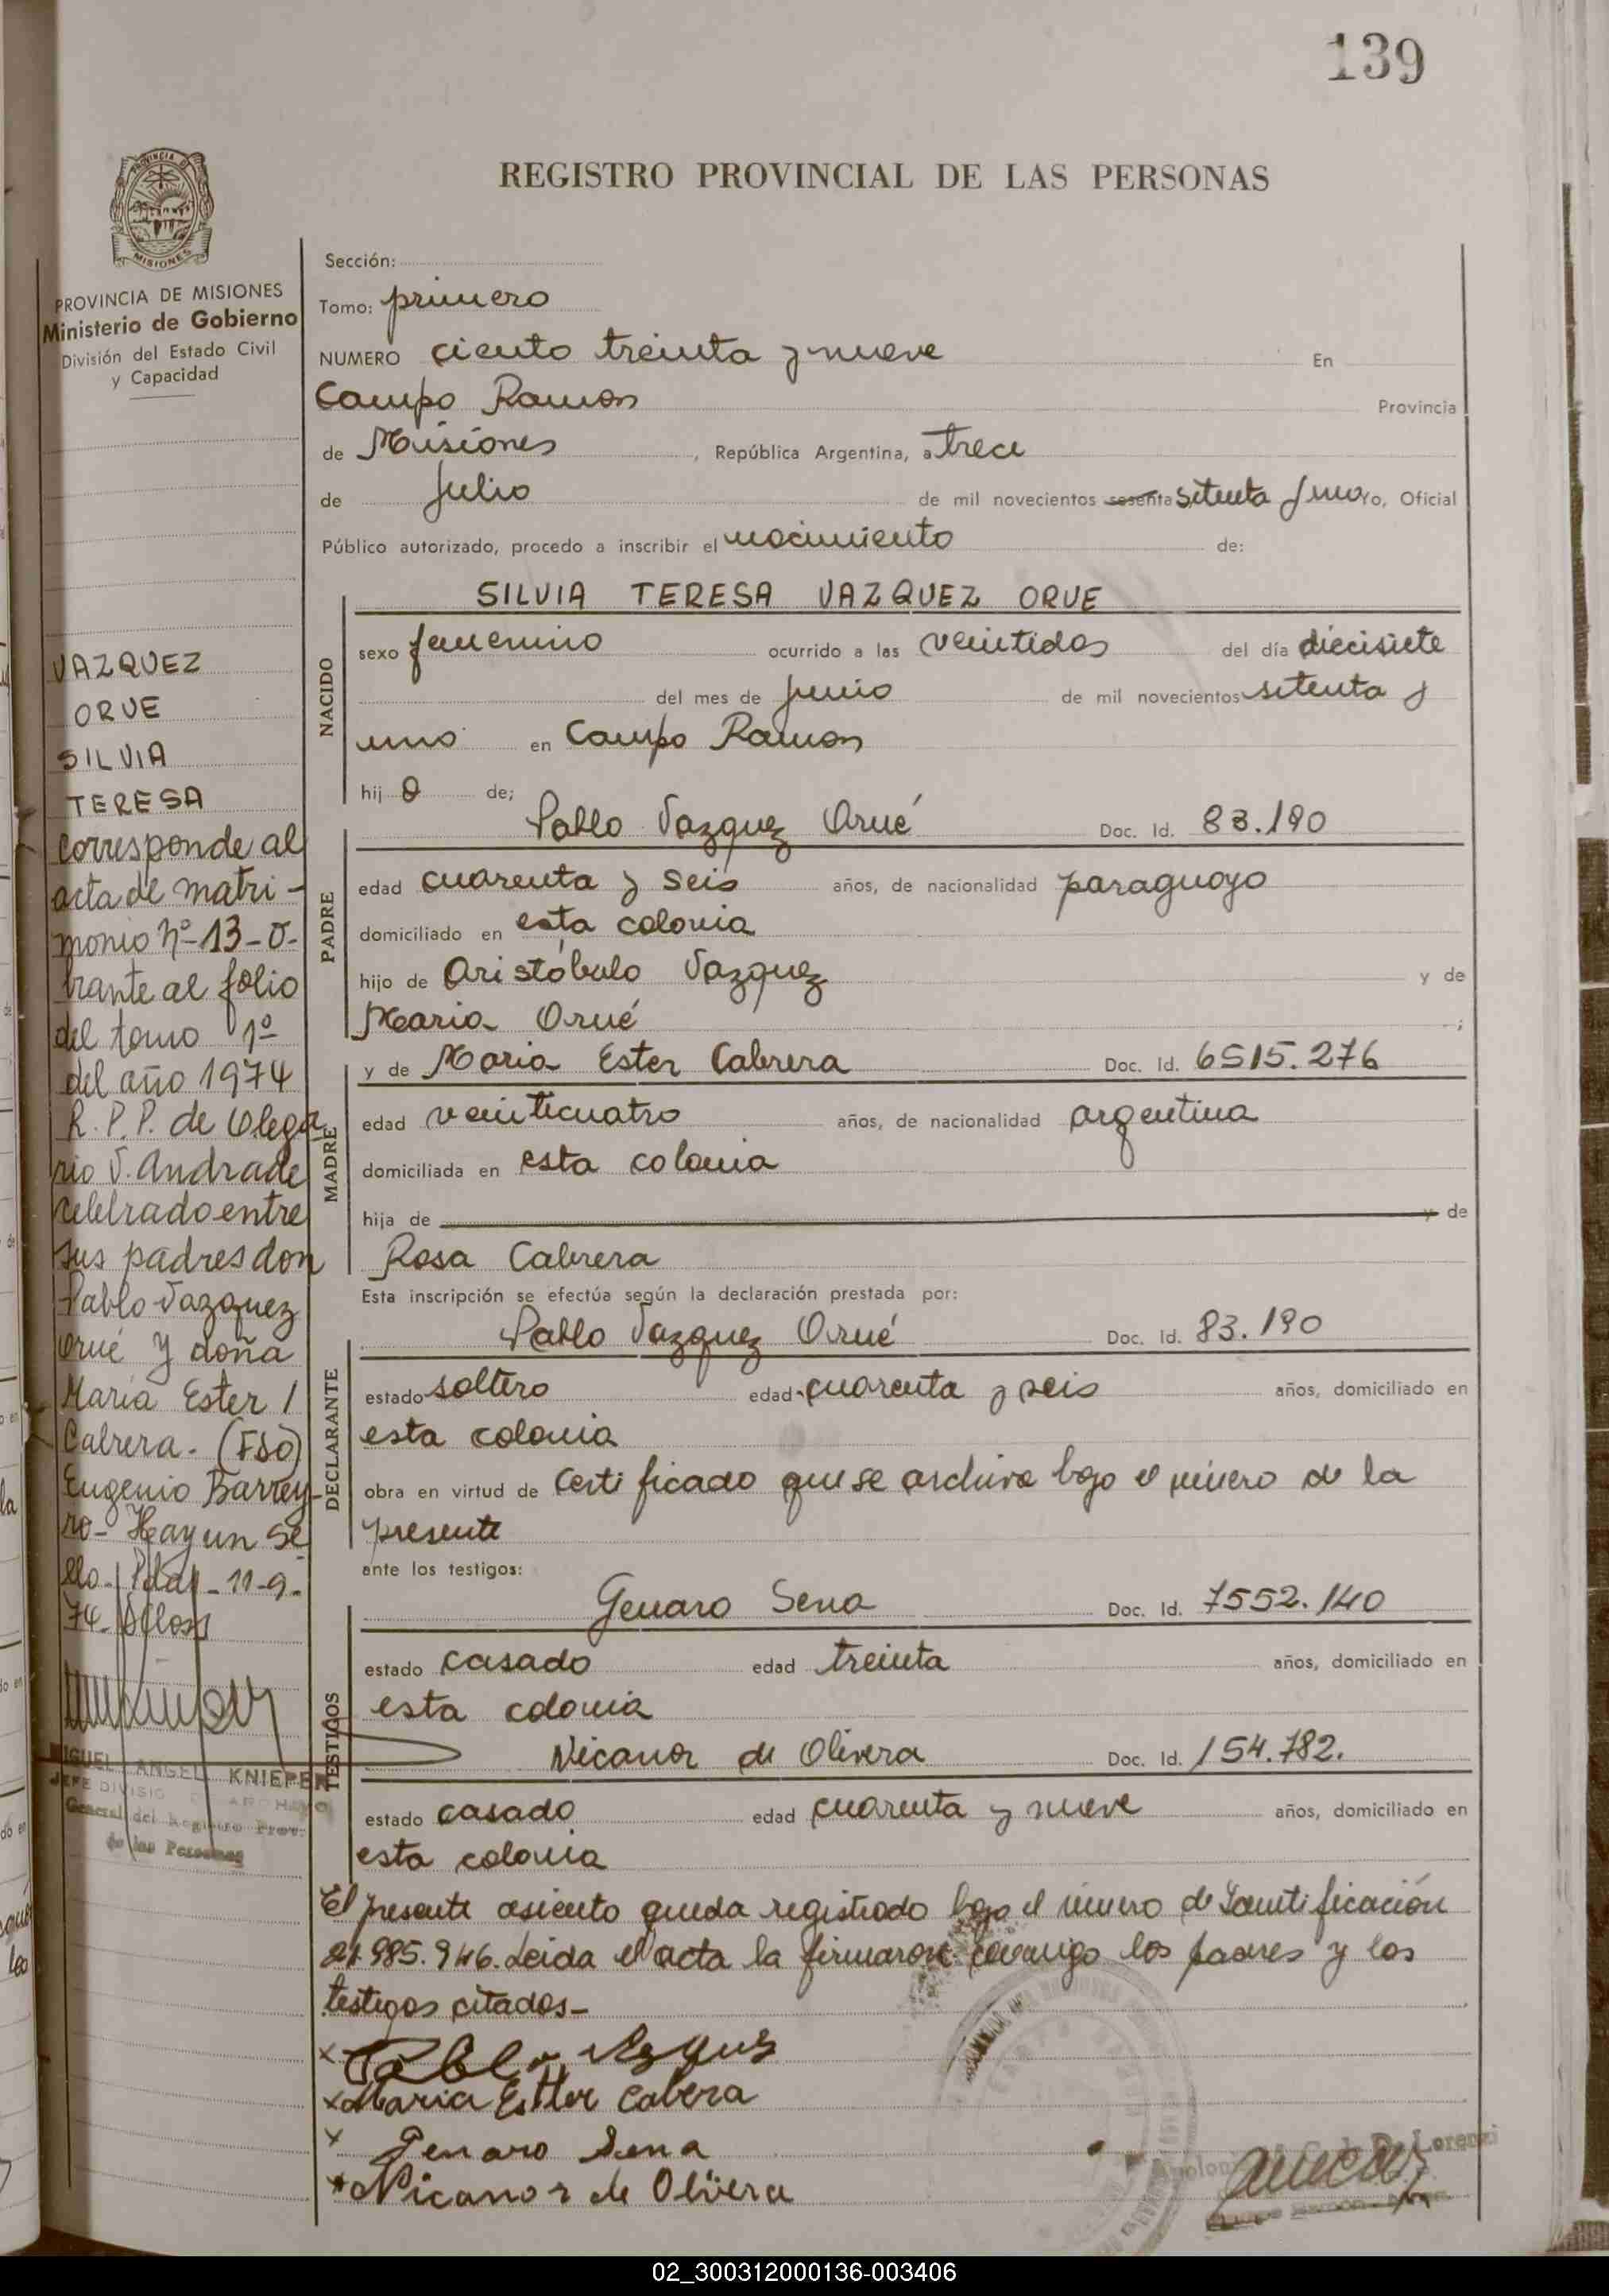 139
REGISTRO PROVINCIAL DE LAS PERSONAS
PROVINCIA DE MISIONES
MISIONES
PROVINCIA DE MISIONES
Ministerio de Gobierno
División del Estado Civil
y Capacidad
VAZQUEZ
ORUE
SILVIA
TERESA
Corresponde al
acta de matri-
monio Nº-13-O-
brante al folio
del tomo 1º
del año 1974
R. P. P. de Olega
rio V. Andrade
celebrado entre
sus padres don
Pablo Vazquez
Orué y doña
María Ester /
Cabrera. (Fdo)
Eugenio Barrey-
ro- Hay un se
llo- Pdas - 11-9-
74-
MIGUEL ANGEL KNIEPER
JEFE DIVISIO
General del Registro Prov.
de las Personas
Sección:
Tomo: primero
NUMERO ciento treinta y nueve En
Campo Ramon Provincia
de Misiones, República Argentina, a trece
de Julio de mil novecientos sesenta setenta y uno Yo, Oficial
Público autorizado, procedo a inscribir el nacimiento de:
NACIDO
SILVIA TERESA VAZQUEZ ORUE
sexo femenino ocurrido a las veintidos del día diecisiete
del mes de junio de mil novecientos setenta y
uno en Campo Ramon
hij a de;
PADRE
Pablo Vazquez Orué Doc. Id. 83.190
edad cuarenta y seis años, de nacionalidad paraguayo
domiciliado en esta colonia
hijo de Aristóbulo Vazquez y de
Maria Orué ;
MADRE
y de Maria Ester Cabrera Doc. Id. 6515.276
edad veinticuatro años, de nacionalidad argentina
domiciliada en esta colonia
hija de y de
Rosa Cabrera
Esta inscripción se efectúa según la declaración prestada por:
DECLARANTE
Pablo Vazquez Orué Doc. Id. 83.190
estado soltero edad cuarenta y seis años, domiciliado en
esta colonia
obra en virtud de Certificado que se archiva bajo el número de la
presente
ante los testigos:
TESTIGOS
Genaro Sena Doc. Id. 7552.140
estado casado edad treinta años, domiciliado en
esta colonia
Nicanor de Olivera Doc. Id. 154.782.
estado casado edad cuarenta y nueve años, domiciliado en
esta colonia
El presente asiento queda registrado bajo el número de Identificación
21.985.946. Leida el acta la firmaron conmigo los padres y los
testigos citados-
x Pablo Vazquez
x Maria Ester Cabrera
x Genaro Sena
x Nicanor de Olivera
De Lorenzi
02_300312000136-003406